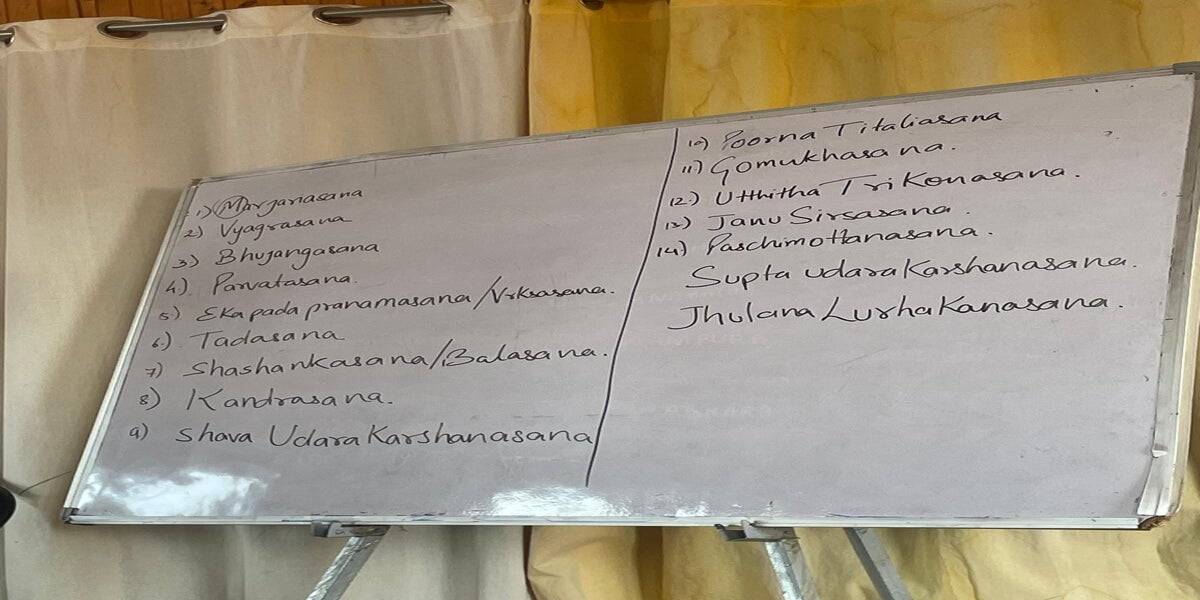 1) Marjariasana
2) Vyagrasana
3) Bhujangasana
4) Parvatasana.
5) Eka pada pranamasana/Vrksasana.
6) Tadasana
7) Shashankasana/Balasana.
8) Kandrasana.
9) Shava Udara Karshanasana
10) Poorna Titaliasana
11) Gomukhasana.
12) Utthitha Tri Konasana.
13) Janu Sirsasana.
14) Paschimottanasana.
Supta udara Karshanasana.
Jhulana Lurhakanasana.